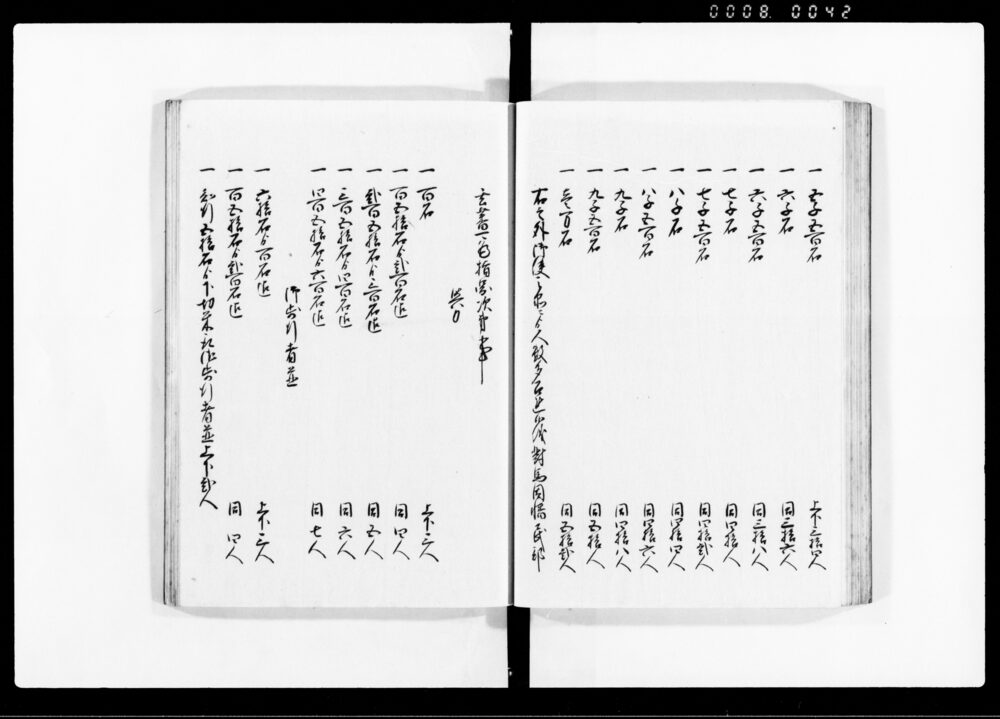 0008. 0042
一 五千五百石 上下三拾四人
一 六千石 同三拾六人
一 六千五百石 同三拾八人
一 七千石 同四拾人
一 七千五百石 同四拾弐人
一 八千石 同四拾四人
一 八千五百石 同四拾六人
一 九千石 同四拾八人
一 九千五百石 同五拾人
一 壱万石 同五拾弐人
右之外 人数多召連候 對馬因幡民部
次第事
与力
一 百石 上下三人
一 百五拾石ゟ弐百石迄 同四人
一 弐百五拾石ゟ三百石迄 同五人
一 三百五拾石ゟ四百石迄 同六人
一 四百五拾石ゟ六百石迄 同七人
御歩行者並
一 六拾石ゟ百石迄 上下三人
一 百五拾石ゟ弐百石迄 同四人
一 知行五拾石ゟ下切米 歩行者並上下弐人